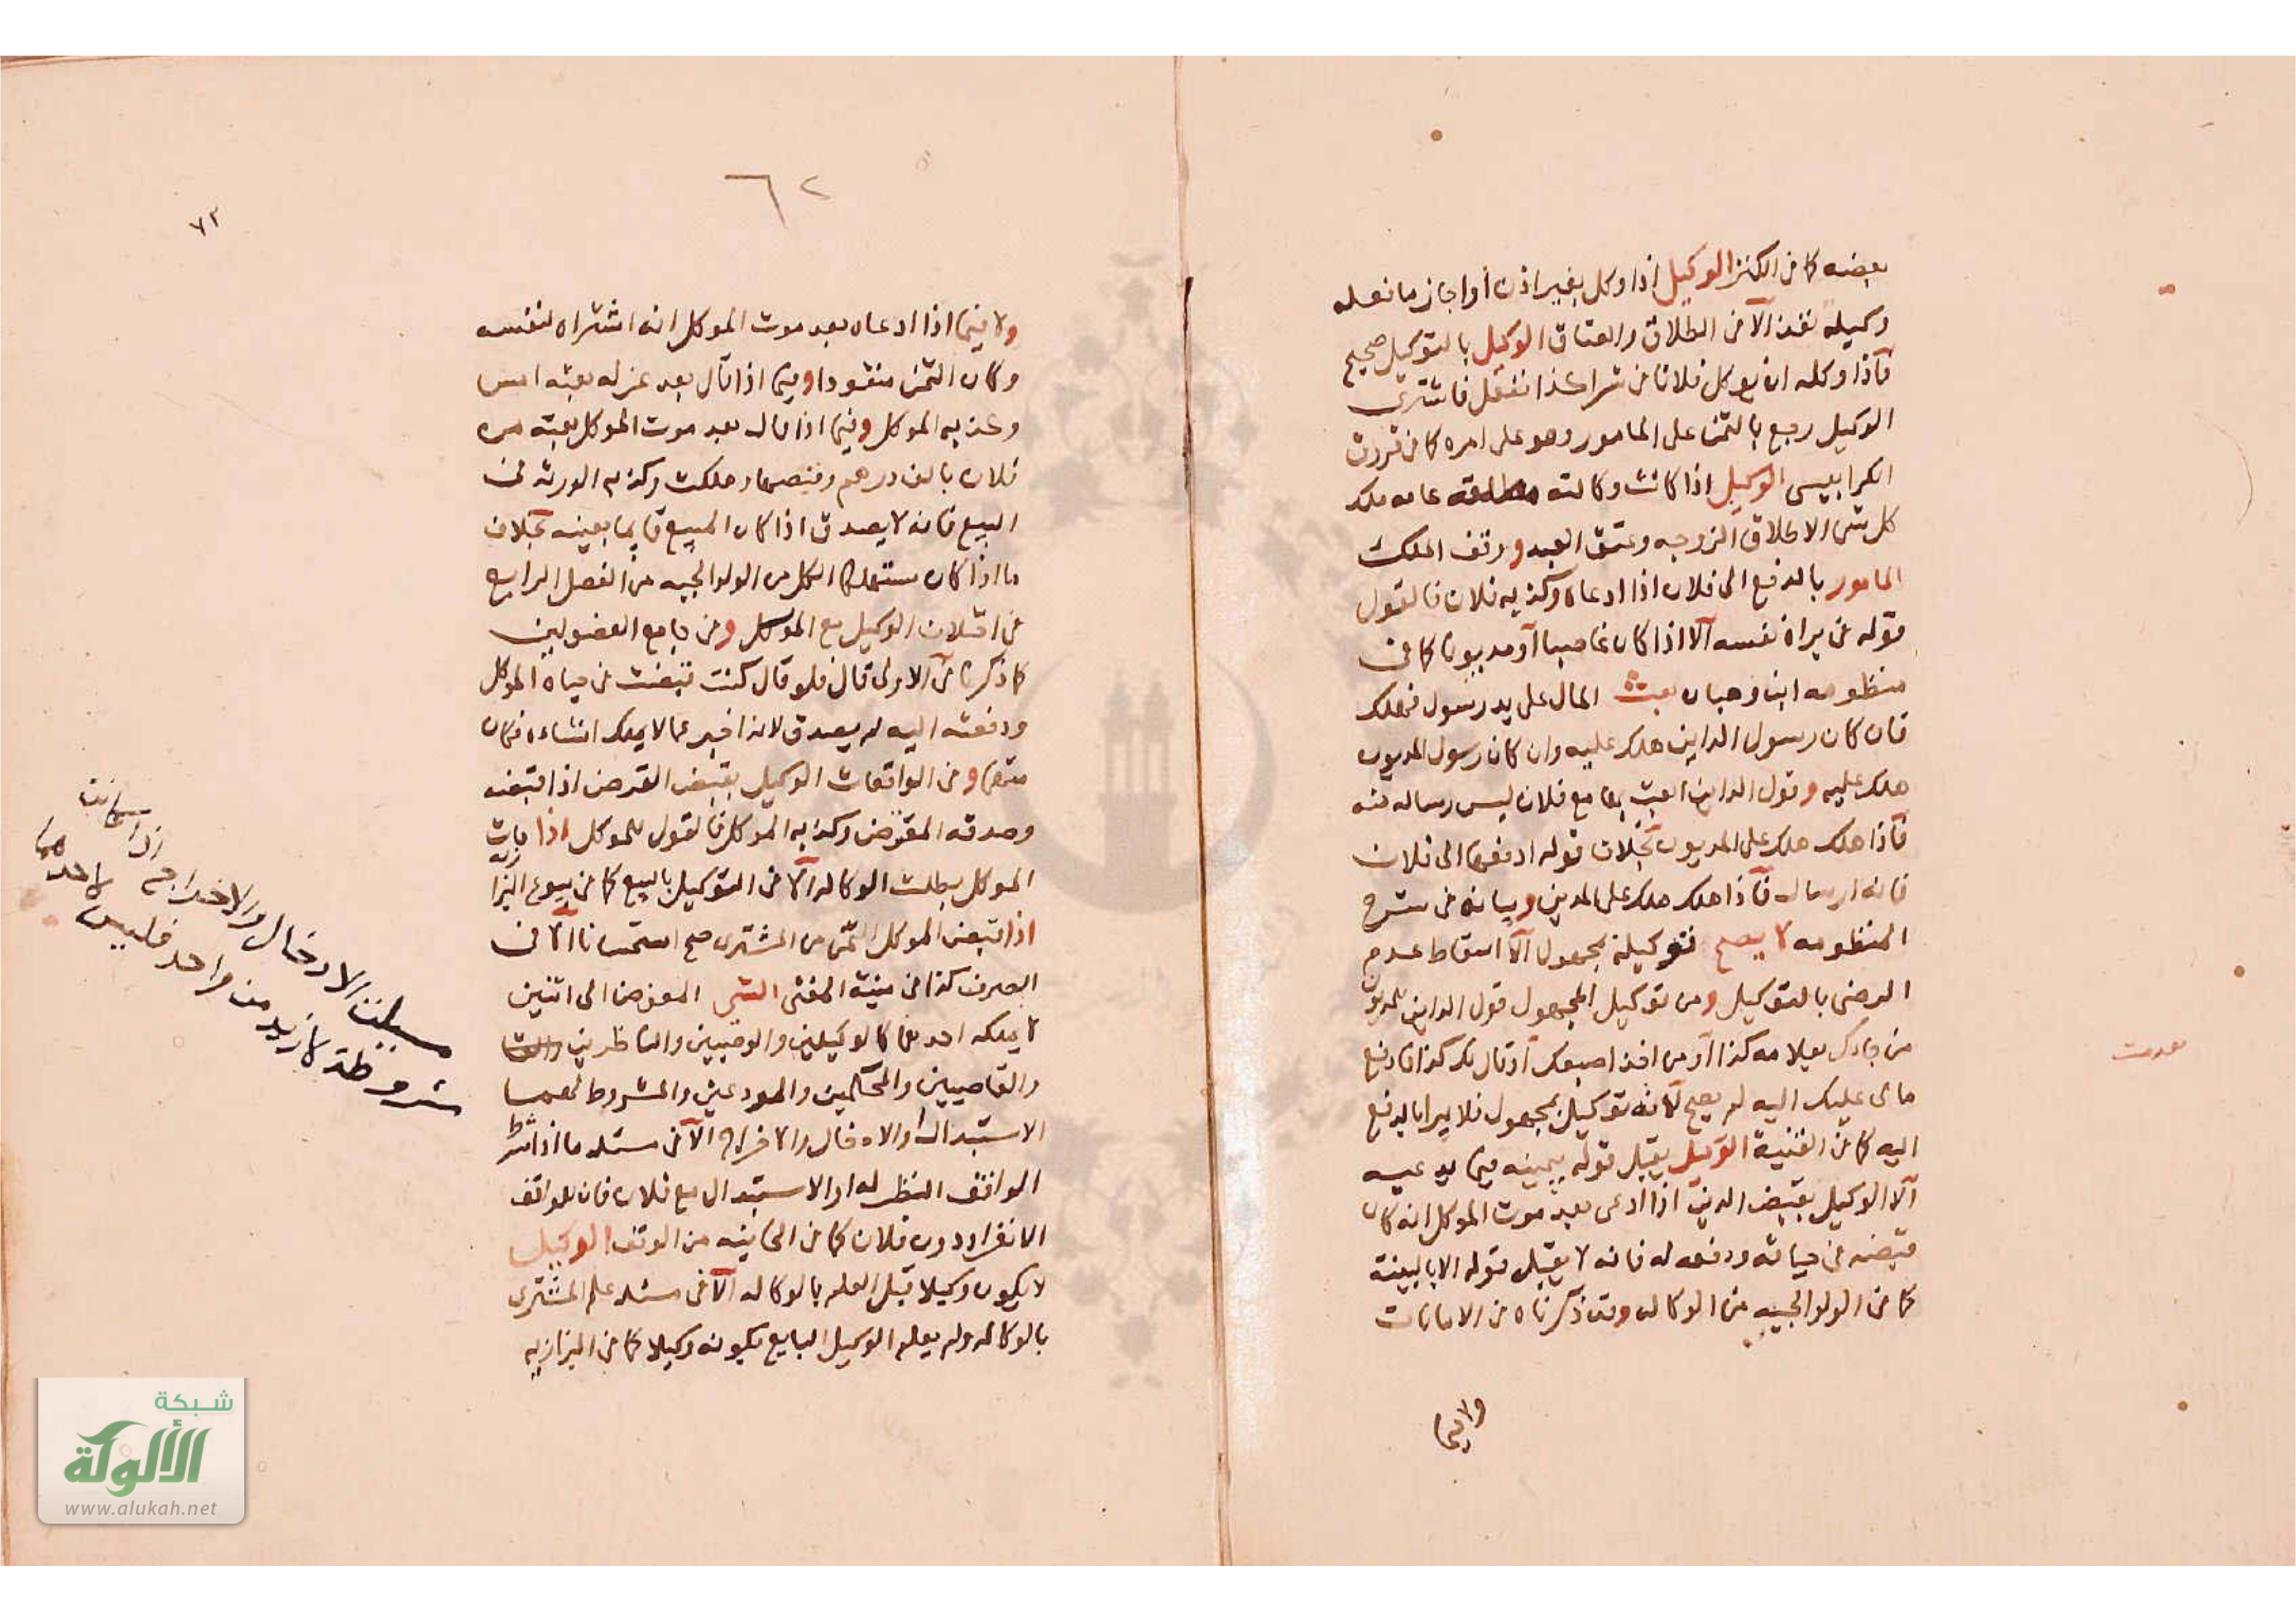 بعضه كما في الكنز الوكيل اذا وكل بغير اذن او اجاز ما فعله
وكيله نفذ الا في الطلاق والعتاق الوكيل بالتوكيل صحيح
فاذا وكله ان يوكل فلانا في شراكذا ففعل فاشترى
الوكيل رجع بالثمن على المامور وهو على امره كما في فروق
الكرابيسي الوكيل اذا كانت وكالته مطلقه عامه ملك
كل شي الا طلاق الزوجه وعتق العبد ووقف الملك
المامور بالدفع الى فلان اذا ادعاه وكذبه فلان فالقول
قوله في براة نفسه الا اذا كان غاصبا او مديونا كما في
منظومه ابن وهبان بعث المال على يد رسول فهلك
فان كان رسول الداين هلك عليه وان كان رسول المديون
هلك عليه وقول الداين ابعث بها مع فلان ليس رساله منه
فاذا هلك هلك على المديون بخلاف قوله ادفعها الى فلان
فانه ارسال فاذا هلك هلك على الدين وبيانه في شرح
المنظومه لا يصح توكيله مجهول الا اسقاط عدم
الرضى بالتوكيل ومن توكيل المجهول قول الداين للمديون
من جاك بعلامه كذا او من اخذ اصبعك او قال لك كذا فادفع
مالى عليك اليه لم يصح لانه توكيل مجهول فلا يبرا بالدفع
اليه كما في القنية الوكيل يقبل قوله بيمينه فيما يدعيه
الا الوكيل بقبض الدين اذا ادعى بعد موت الموكل انه كان
قبضه في حياته ودفعه له فانه لا يقبل قوله الا بالبينة
كما في الولوالجيه من الوكاله وقد ذكرناه في الامانات
ولا فيما
٦٢
٧٢
ولا فيما اذا ادعاه بعد موت الموكل انه اشتراه لنفسه
وكان الثمن منقودا وفيما اذا قال بعد عزله بعته امس
وكذبه الموكل وفيما اذا قال بعد موت الموكل بعته من
فلان بالف درهم وقبضها وهلكت وكذبه الورثه في
البيع فانه لا يصدق اذا كان المبيع قايما بعينه بخلاف
ما اذا كان مستهلكا الكل من الولوالجيه من الفصل الرابع
في اختلاف الوكيل مع الموكل وفي جامع الفصولين
كما ذكرنا في الاولى قال فلو قال كنت قبضت في حياة الموكل
ودفعته اليه لم يصدق لانه اخبر عما لا يملك انشاءه فكان
متهما وفي الواقعات الوكيل بقبض القرض اذا قبضه
وصدقه المقرض وكذبه الموكل فالقول للموكل اذا مات
الموكل بطلت الوكاله الا في التوكيل بالبيع كما في بيوع البزازيه
اذا قبض الموكل الثمن من المشترى صح استحسانا الا في
الصرف كذا في منية المفتى الشي المفوض الى اثنين
لا يملكه احدهما كالوكيلين والوصيين والناظرين
والقاضيين والحكمين والمودعين والمشروط لهما
الاستبدال والادخال والاخراج الا في مسئله ما اذا شرط
الواقف النظر له او الاستبدال مع فلان فان للواقف
الانفراد دون فلان كما في الخانيه من الوقف الوكيل
لا يكون وكيلا قبل العلم بالوكاله الا في مسئله علم المشترى
بالوكاله ولم يعلم الوكيل البايع بكونه وكيلا كما في البزازيه
الادخال والاخراج اذا كانت
مشروطة لازيد من واحد فليس لاحدهما
شبكة
الألوكة
www.alukah.net